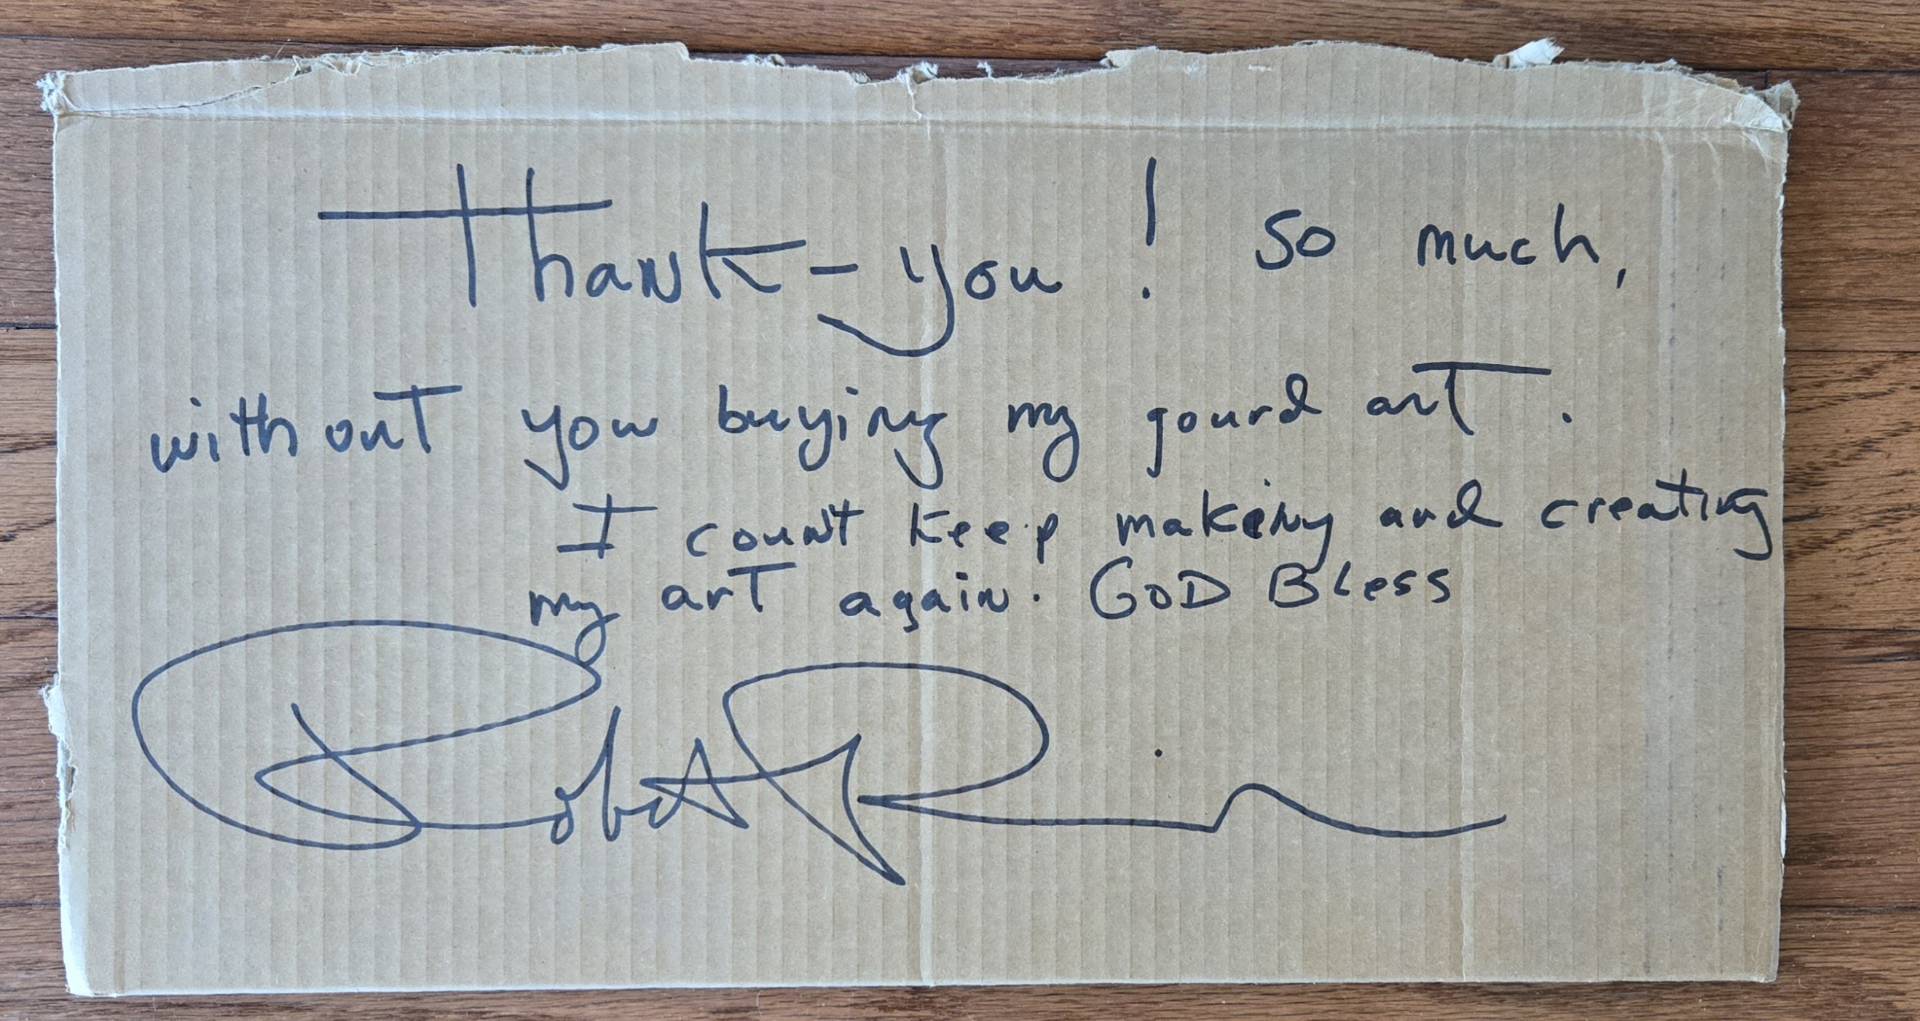 Thank-you! So much,
without you buying my gourd art.
I count keep makeing and creating
my art again. GOD BLess
Robert